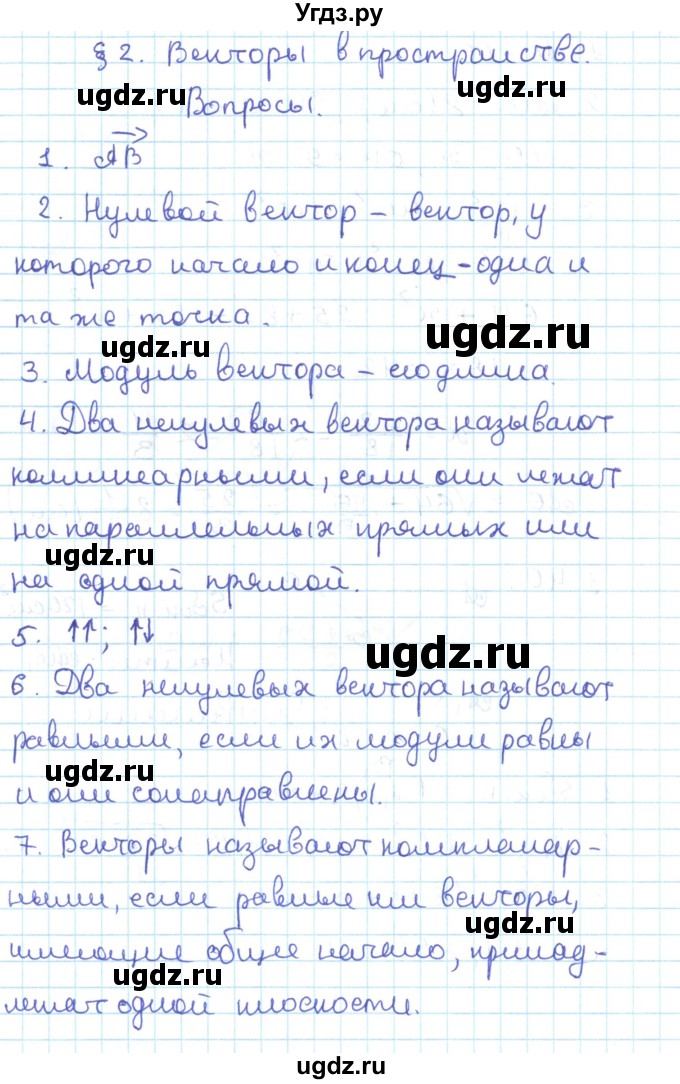 Угдз.ру
§ 2. Векторы в пространстве.
ugdz.ru ugdz.ru
Вопросы.
1. AB
2. Нулевой вектор – вектор, у
которого начало и конец – одна и
та же точка.
ugdz.ru ugdz.ru
3. Модуль вектора – его длина.
4. Два ненулевых вектора называют
коллинеарными, если они лежат
на параллельных прямых или
ugdz.ru ugdz.ru
на одной прямой.
5. ↑↑; ↑↓
ugdz.ru
6. Два ненулевых вектора называют
равными, если их модули равны
ugdz.ru
и они сонаправлены.
7. Векторы называют компланар-
ными, если равные им векторы,
ugdz.ru
имеющие общее начало, принад-
ugdz.ru
лежат одной плоскости.
ugdz.ru